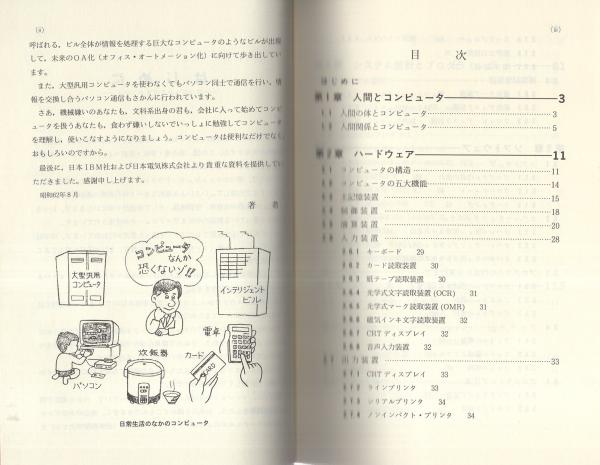 (ii)
呼ばれる,ビル全体が情報を処理する巨大なコンピュータのようなビルが出現
して,未来のOA化(オフィス・オートメーション化)に向けて歩き出してい
ます。
また,大型汎用コンピュータを使わなくてもパソコン同士で通信を行い,情
報を交換し合うパソコン通信もさかんに行われています。
さあ,機械嫌いのあなたも,文科系出身の君も,会社に入って始めてコンピ
ュータを扱うあなたも,食わず嫌いしないでいっしょに勉強してコンピュータ
を理解し,使いこなすようになりましょう。コンピュータは便利なだけでなく
おもしろいのですから。
最後に,日本IBM社および日本電気株式会社より貴重な資料を提供してい
ただきました。感謝申し上げます。
昭和62年8月
著 者
コンピュータ
なんか
恐くないゾ!!
大型汎用
コンピュータ
インテリジェント
ビル
パソコン
炊飯器
カード
CARD
電卓
日常生活のなかのコンピュータ
(iii)
目 次
はじめに
第1章 人間とコンピュータ 3
1.1 人間の体とコンピュータ 3
1.2 人間関係とコンピュータ 5
第2章 ハードウェア 11
コンピュータの構造 11
コンピュータの五大機能 14
主記憶装置 15
制御装置 18
演算装置 20
入力装置 28
キーボード 29
カード読取装置 30
紙テープ読取装置 30
光学式文字読取装置(OCR) 31
光学式マーク読取装置(OMR) 31
磁気インキ文字読取装置 32
CRTディスプレイ 32
音声入力装置 32
出力装置 33
CRTディスプレイ 33
ラインプリンタ 33
シリアルプリンタ 34
ノンインパクト・プリンタ 34